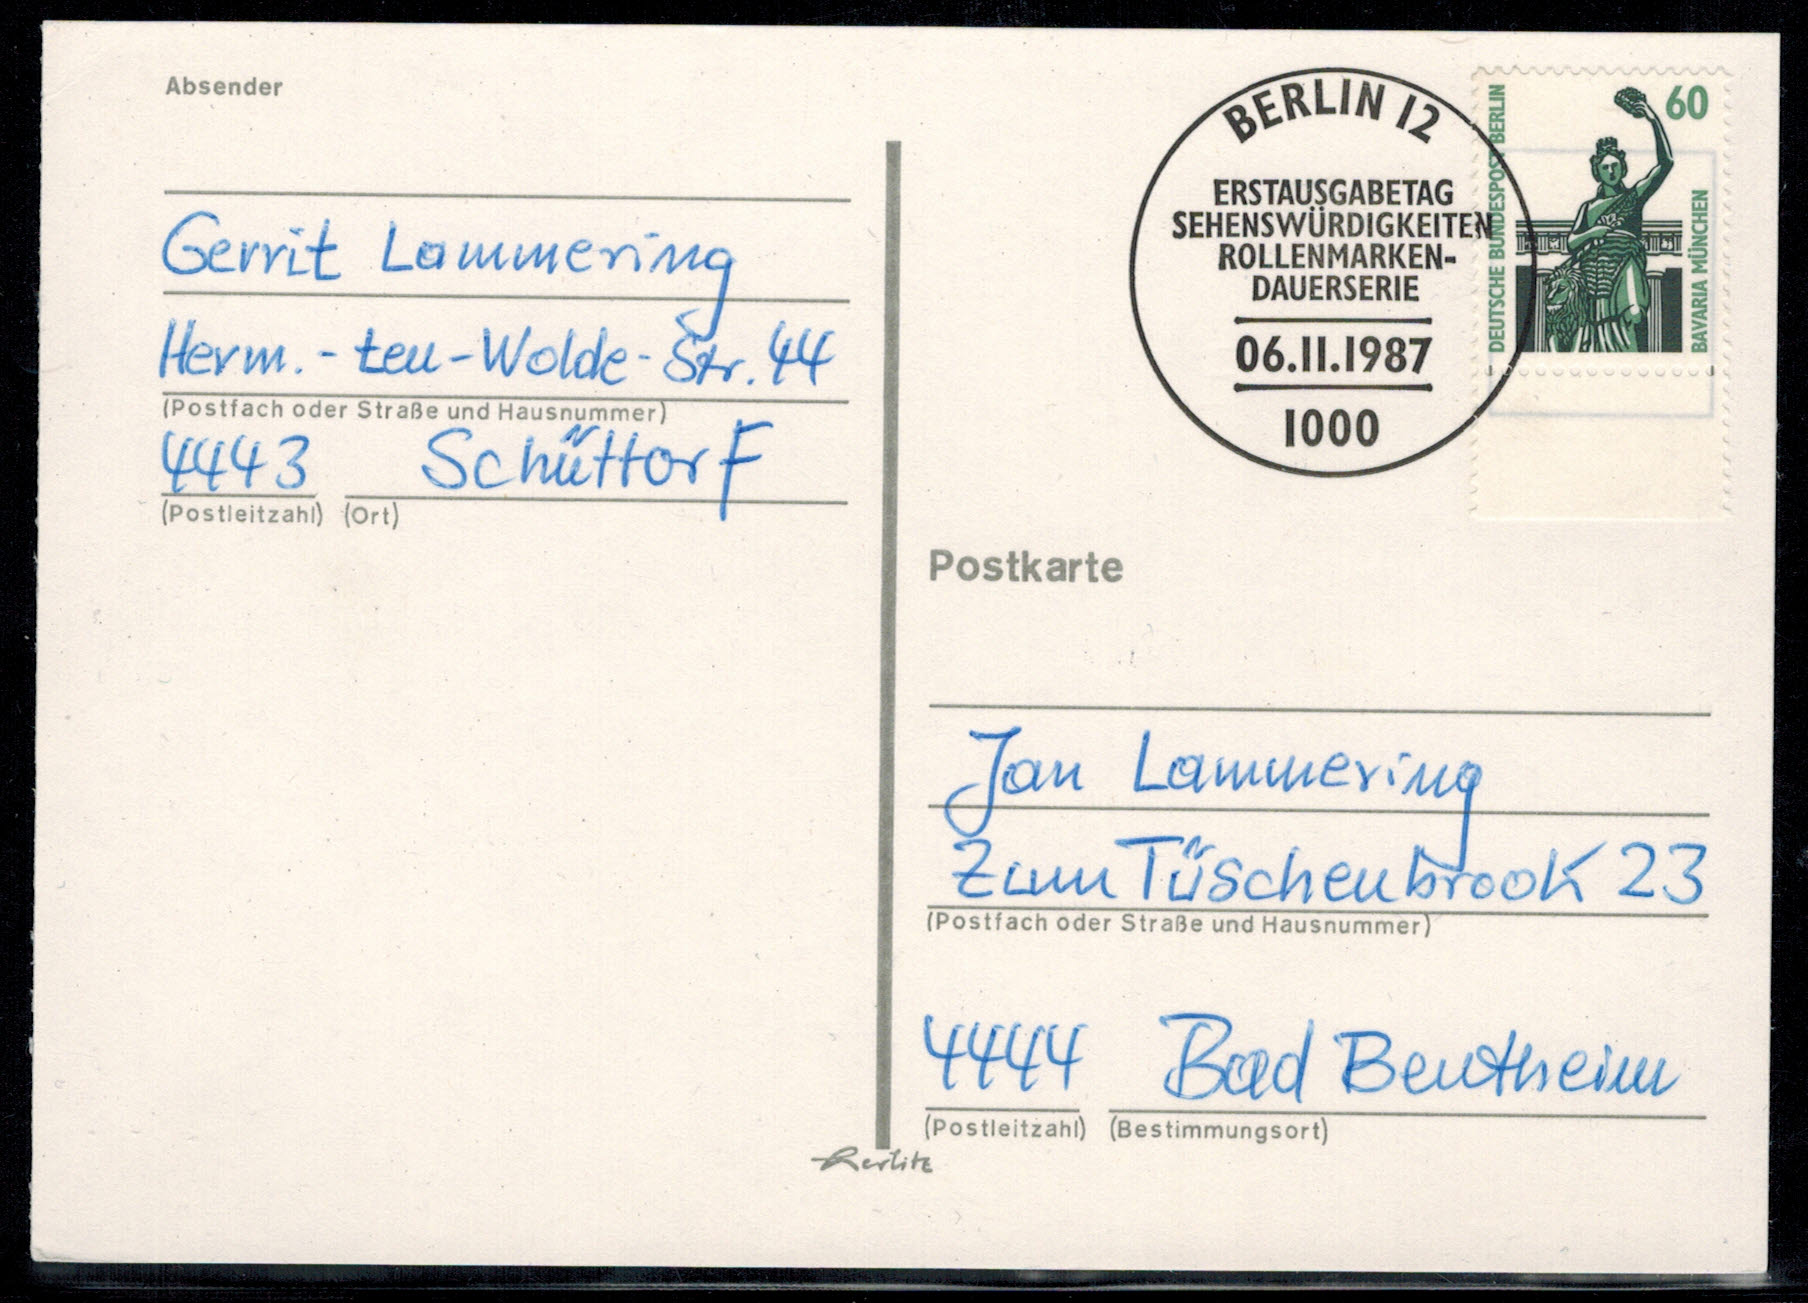 Absender
Gerrit Lammering
Herm.-ten-Wolde-Str. 44
(Postfach oder Straße und Hausnummer)
4443 Schüttorf
(Postleitzahl) (Ort)
BERLIN 12
ERSTAUSGABETAG
SEHENSWÜRDIGKEITEN
ROLLENMARKEN-
DAUERSERIE
06.11.1987
1000
DEUTSCHE BUNDESPOST BERLIN
60
BAVARIA MÜNCHEN
Postkarte
Jan Lammering
Zum Tüschenbrook 23
(Postfach oder Straße und Hausnummer)
4444 Bad Bentheim
(Postleitzahl) (Bestimmungsort)
Herlitz